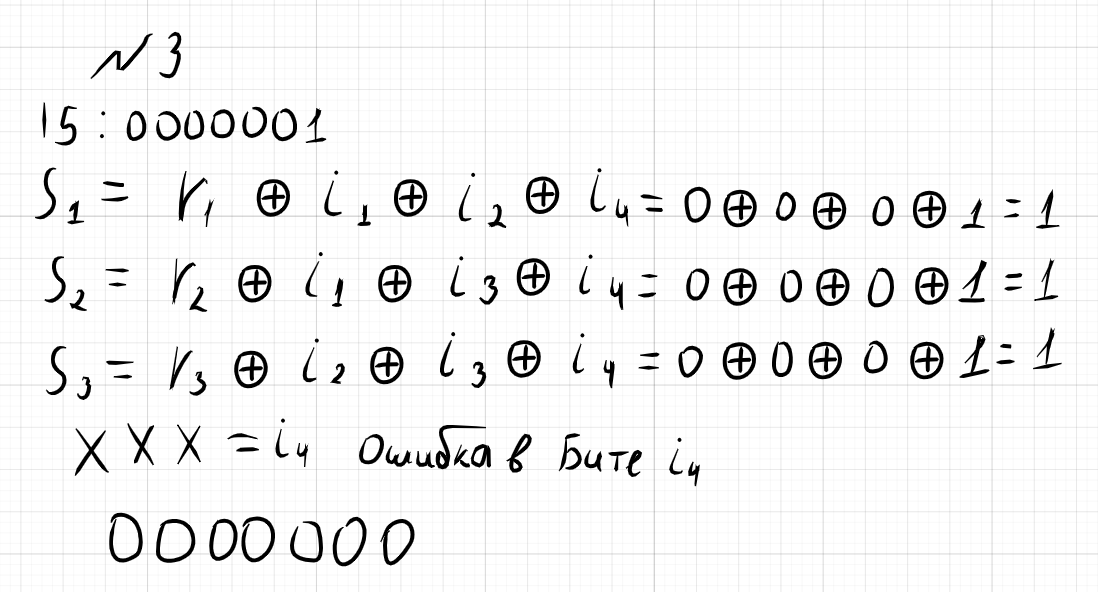 №3
15 : 0000001
S₁ = r₁ ⊕ i₁ ⊕ i₂ ⊕ i₄ = 0 ⊕ 0 ⊕ 0 ⊕ 1 = 1
S₂ = r₂ ⊕ i₁ ⊕ i₃ ⊕ i₄ = 0 ⊕ 0 ⊕ 0 ⊕ 1 = 1
S₃ = r₃ ⊕ i₂ ⊕ i₃ ⊕ i₄ = 0 ⊕ 0 ⊕ 0 ⊕ 1 = 1
X X X = i₄ Ошибка в Бите i₄
0000000